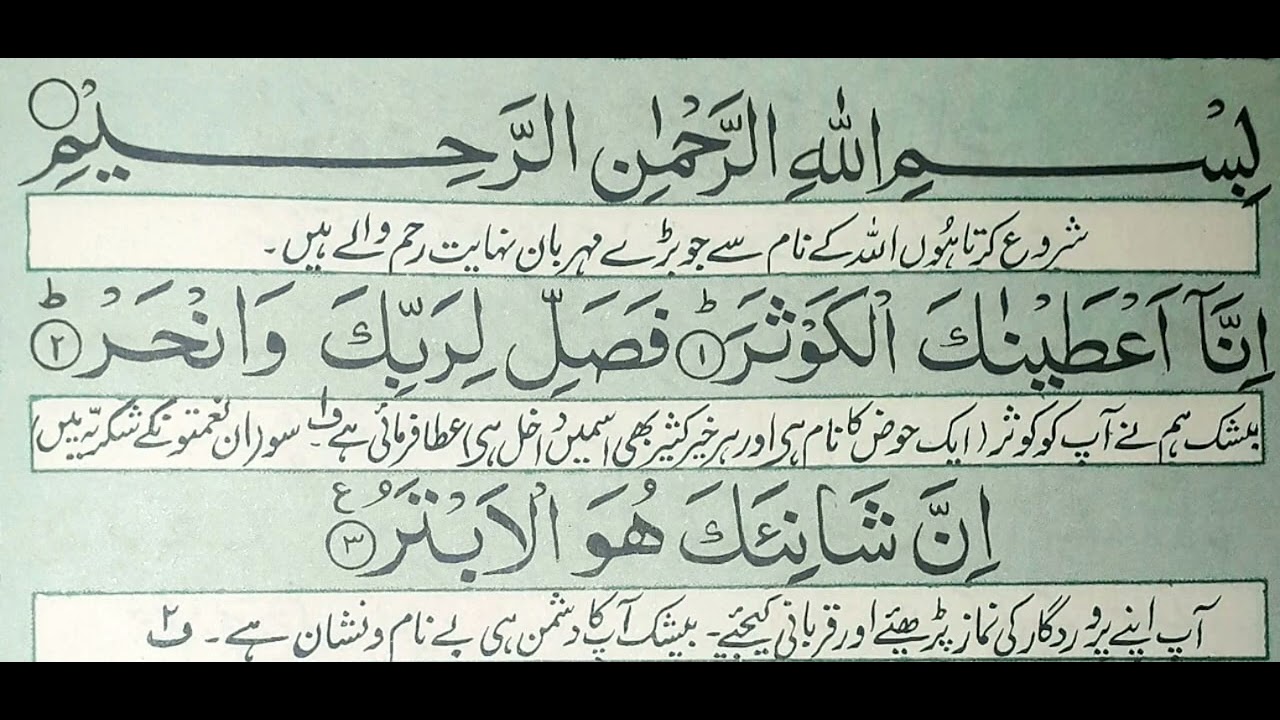 بِسْمِ اللّٰهِ الرَّحْمٰنِ الرَّحِیْمِ
شروع کرتا ہُوں اللہ کے نام سے جو بڑے مہربان نہایت رحم والے ہیں۔
اِنَّآ اَعْطَیْنٰكَ الْكَوْثَرَ ؕ﴿۱﴾ فَصَلِّ لِرَبِّكَ وَانْحَرْ ؕ﴿۲﴾
بیشک ہم نے آپ کو کوثر (ایک حوض کا نام ہی اور ہر خیر کثیر بھی اسمیں داخل ہی) عطا فرمائی ہے ف۱ سو (ان نعمتونکے شکریہ میں)
اِنَّ شَانِئَكَ هُوَ الْاَبْتَرُ ﴿۳﴾ ع
آپ اپنے پروردگار کی نماز پڑھیئے اور قربانی کیجئیے۔ بیشک آپ کا دشمن ہی بے نام و نشان ہے۔ ف۲